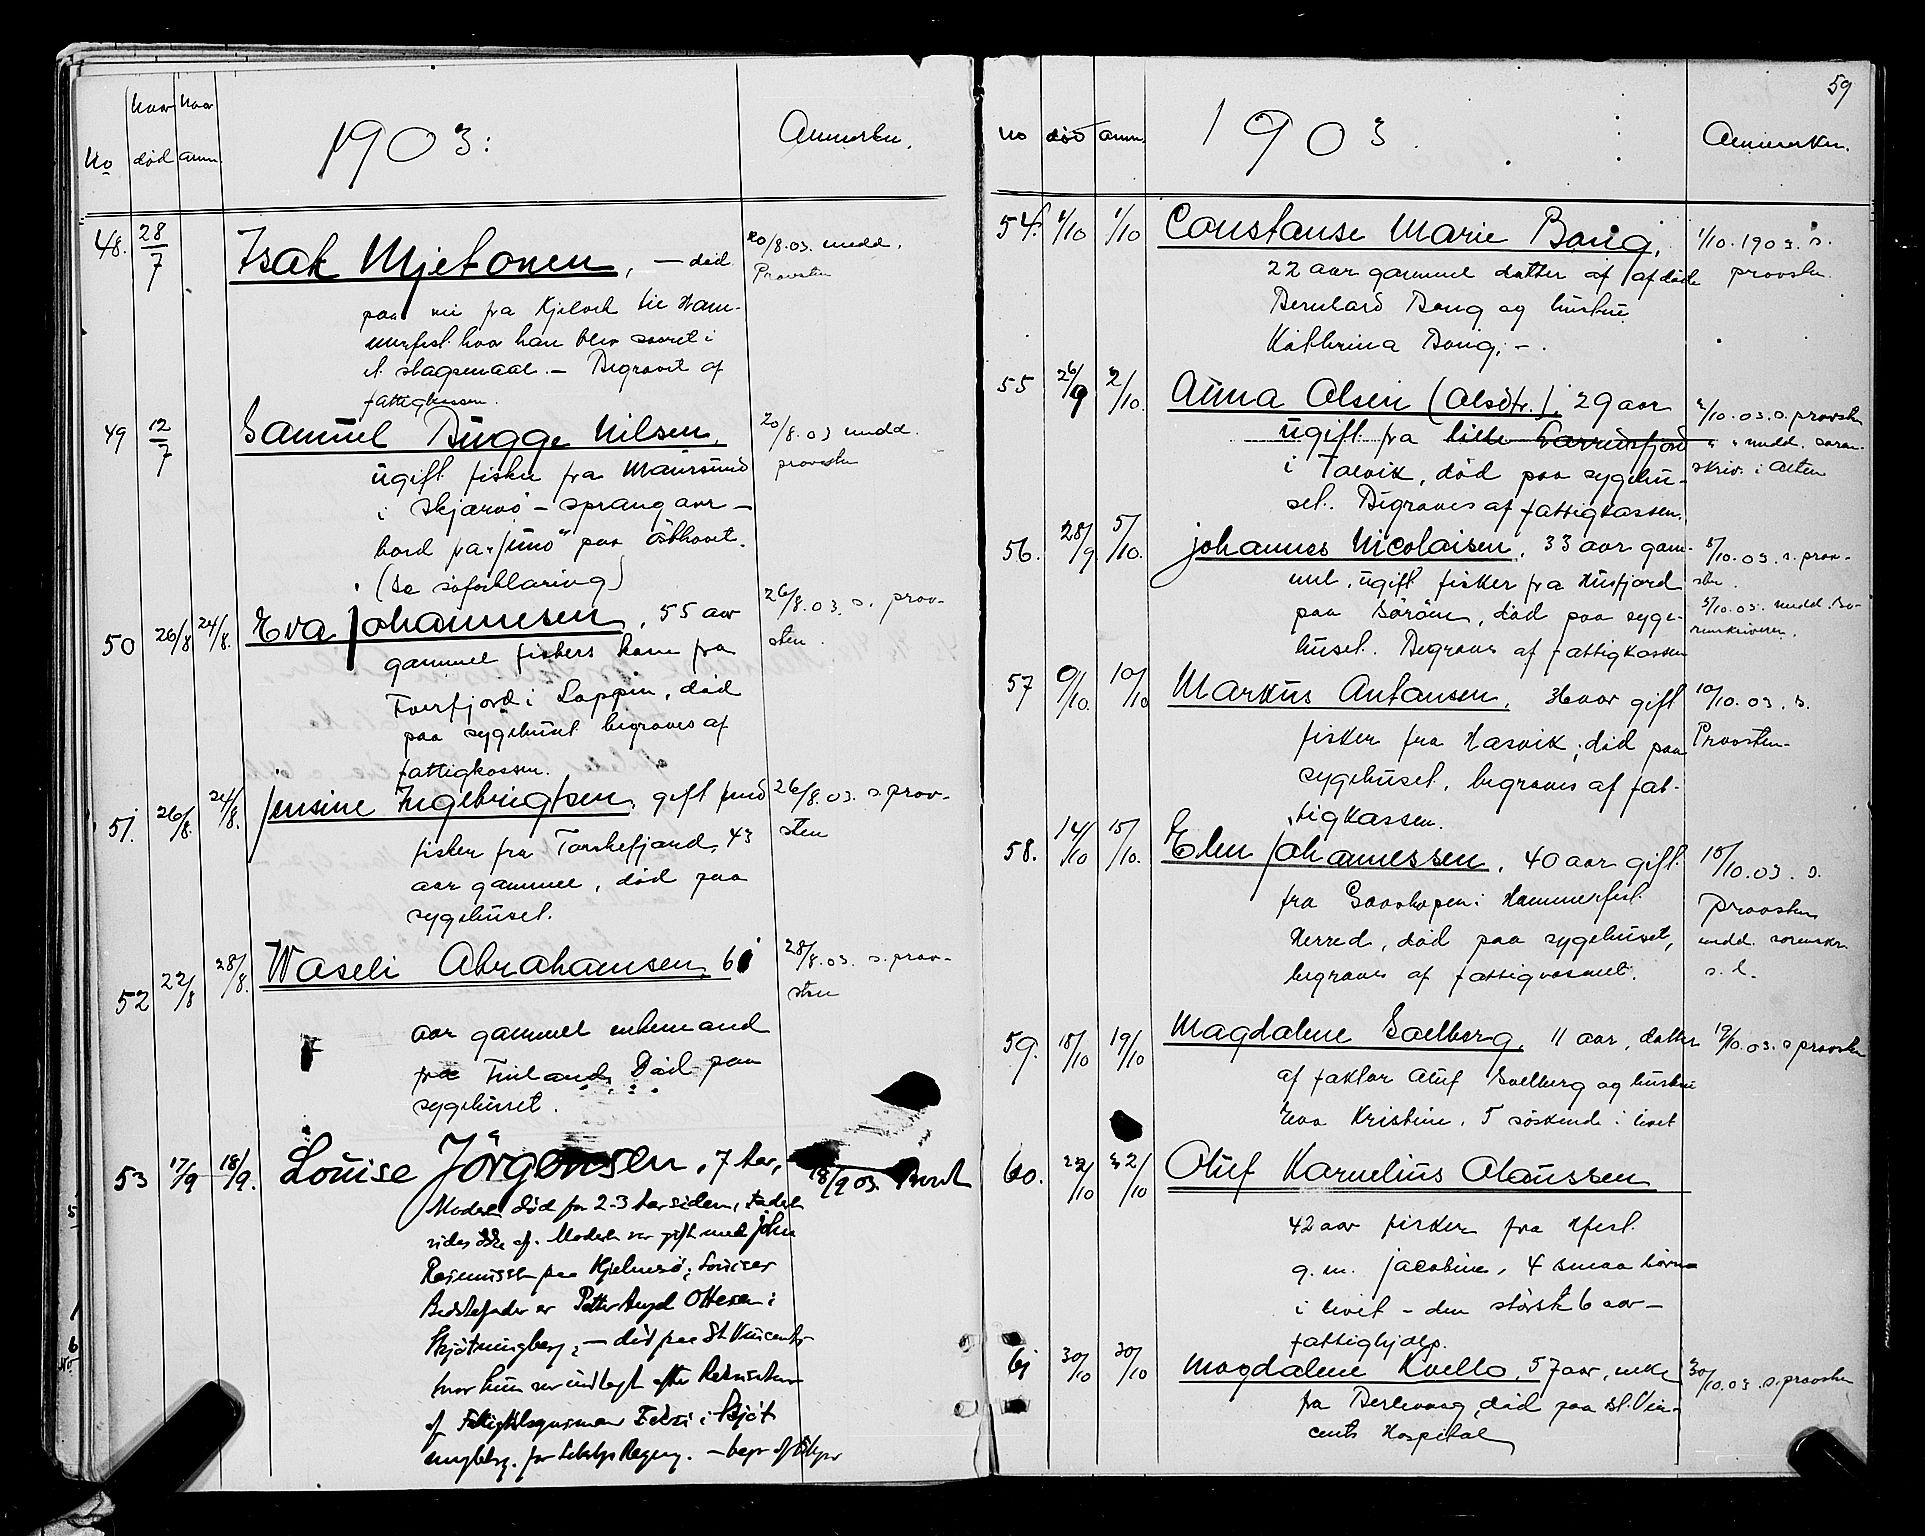 Naar Naar
No død anm. 1903: Anmerkn.
48. 28/7 Isak Mjetonen, — død 20/8.03. medd.
Provsten
paa vei fra Kjelvik til Ham-
merfest hvor han blev saaret i
et slagsmaal. — Begravet af
fattigkassen.
49 12/7 Samuel Bugge Nilsen, 20/8.03 medd.
provsten
ugift fisker fra Maursund
i Skjærvö — sprang over-
bord fra "Juno" paa Östhavet.
(Se söforklaring)
50 26/8 24/8. Eva Johannesen, 55 aar 26/8.03. s. prov-
sten.
gammel fiskers kone fra
Loppen, død
paa sygehuset begraves af
fattigkassen.
51. 26/8. 24/8. Jensine Ingebrigtsen, gift med 26/8.03. s. prov-
sten
fisker fra Torskefjord, 43
aar gammel, død paa
sygehuset.
52 22/8 28/8. Waseli Abrahamsen, 61 28/8.03. s. prov-
sten
aar gammel enkemand
fra Finland. Død paa
sygehuset.
53 17/9 18/9. Louise Jörgensen, 7 Aar, 18/9 03.
Moderen død for 2-3 Aar siden, Faderen
vides ikke af. Moderen var gift med John
Rasmussen paa Hjelmsö; Louises
Bedstefader er Petter Ottesen i
Skjötningberg; — død paa St. Vincents
hvor hun var indlagt efter
af i Skjöt
ningberg. for — begr. af
59
No død anm. 1903. Anmerkn.
54. 1/10 1/10 Constanse Marie Bang, 1/10.1903. s.
22 aar gammel datter af afdøde provsten.
Bernhard Bang og hustru
Kathrina Bang. —.
55 26/9 2/10. Anna Olsen (Olsdtr.), 29 aar 2/10.03. s. provsten
ugift fra lille " " medd. soren-
i Talvik, død paa sygehu- skriv. i Alten
set. Begraves af fattigkassen.
56. 28/9 5/10. Johannes Nicolaisen, 33 aar gam- 5/10.03. s. prov-
mel, ugift fisker fra Husfjord sten.
paa Söröen, død paa syge- 5/10.03. medd. So-
huset. Begraves af fattigkassen renskriveren.
57 9/10. 10/10 Markus Antonsen, 36 aar gift 10/10.03. s.
fisker fra Hasvik, død paa Provsten
sygehuset, begraves af fat-
tigkassen.
58. 14/10 15/10. Elen Johannessen, 40 aar gift 15/10.03. s.
fra i Hammerfest provsten
Herred, død paa sygehuset, medd. sorenskr.
begraves af fattigvæsenet. s. d.
59. 18/10 19/10 Magdalene Solberg, 11 aar, datter 19/10.03. s provsten
af faktor Oluf Solberg og hustru
Eva Kristine. 5 söskende i livet
60. 22/10 22/10 Oluf Kornelius Olaussen
42 aar fisker fra Hfest.
g. m. Jacobine, 4 smaa börn
i livet — den störste 6 aar —
fattighjælp.
61 30/10 30/10 Magdalene Kvello, 57 aar, enke 30/10.03. s. provsten
fra Berlevaag, død paa St. Vin-
cents Hospital